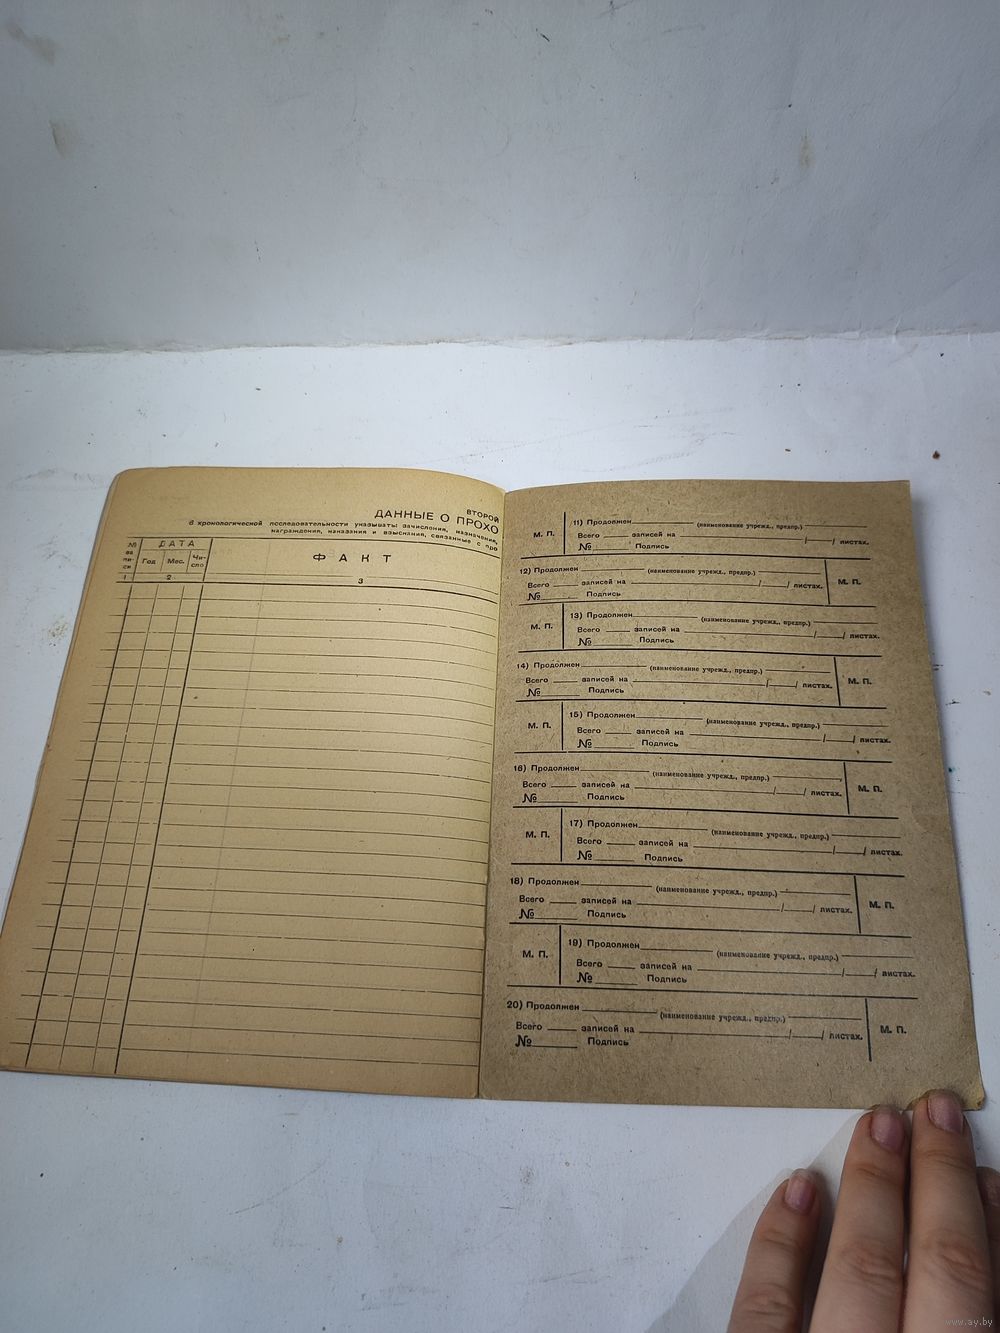 ВТОРОЙ
ДАННЫЕ О ПРОХО
В хронологической последовательности указывать: зачисления, назначения,
награждения, наказания и взыскания, связанные с про
№ за пи- си
ДАТА
Год Мес. Чи- сло
ФАКТ
1 2 3
М. П.
11) Продолжен (наименование учрежд., предпр.)
Всего записей на / / листах.
№ Подпись
12) Продолжен (наименование учрежд., предпр.)
Всего записей на / / листах.
№ Подпись
М. П.
М. П.
13) Продолжен (наименование учрежд., предпр.)
Всего записей на / / листах.
№ Подпись
14) Продолжен (наименование учрежд., предпр.)
Всего записей на / / листах.
№ Подпись
М. П.
М. П.
15) Продолжен (наименование учрежд., предпр.)
Всего записей на / / листах.
№ Подпись
16) Продолжен (наименование учрежд., предпр.)
Всего записей на / / листах.
№ Подпись
М. П.
М. П.
17) Продолжен (наименование учрежд., предпр.)
Всего записей на / / листах.
№ Подпись
18) Продолжен (наименование учрежд., предпр.)
Всего записей на / / листах.
№ Подпись
М. П.
М. П.
19) Продолжен (наименование учрежд., предпр.)
Всего записей на / / листах.
№ Подпись
20) Продолжен (наименование учрежд., предпр.)
Всего записей на / / листах.
№ Подпись
М. П.
www.ay.by